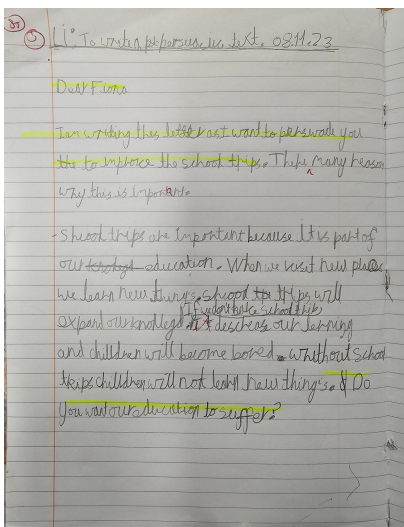 LI: To write a persuasive text. 08.11.23
Dear Fiona
I am writing this letter as I want to perswade you
to improve the school trips. There many reason
why this is important.
- shcool trips are important because It is part of
our education. When we visit new places
we learn new things. shcool trips will
If we dont have school trips
expand our knolleged. it discreas our lerning
and children will become bored. whithout school
trips children will not learn new thing's. Do
you want our education to suffer?